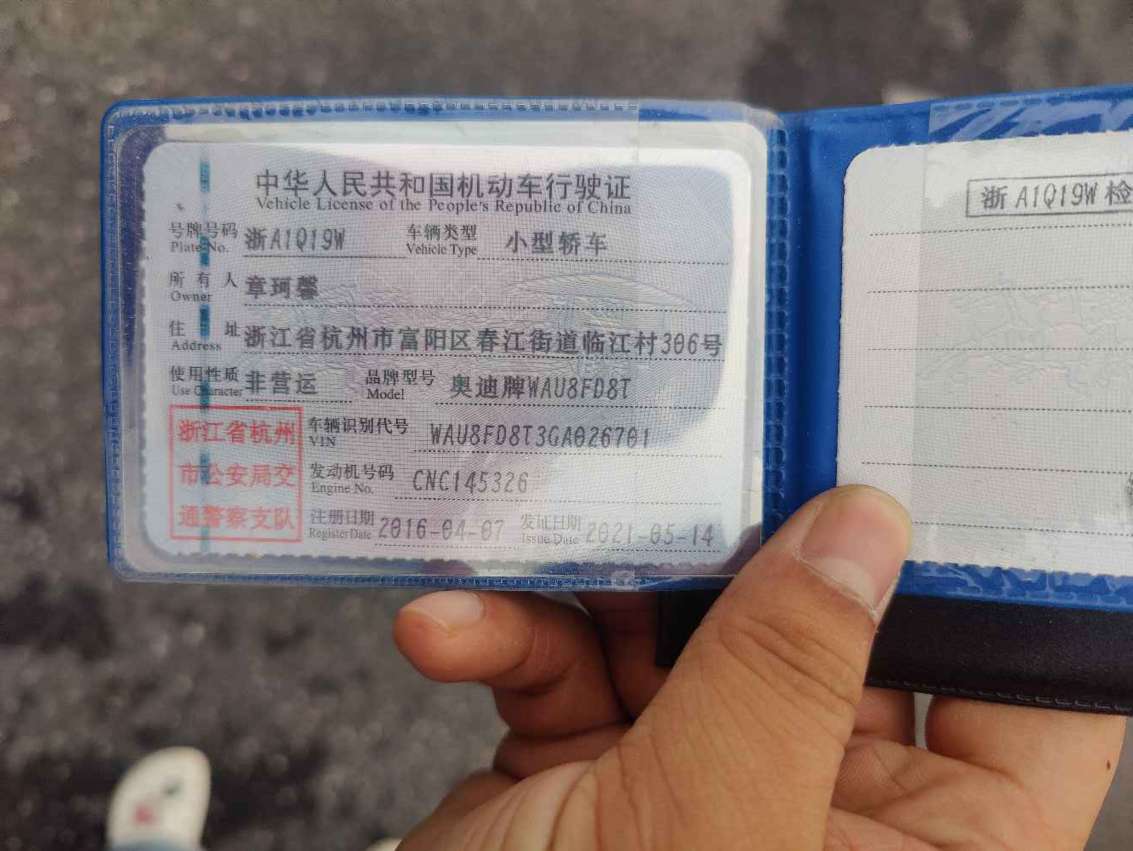 中华人民共和国机动车行驶证
Vehicle License of the People's Republic of China
号牌号码 浙A1Q19W 车辆类型 小型轿车
Plate No. Vehicle Type
所有人 章珂馨
Owner
住址 浙江省杭州市富阳区春江街道临江村306号
Address
使用性质 非营运 品牌型号 奥迪牌WAU8FD8T
Use Character Model
浙江省杭州
市公安局交
通警察支队
车辆识别代号 WAU8FD8T3GA026701
VIN
发动机号码 CNC145326
Engine No.
注册日期 2016-04-07 发证日期 2021-05-14
Register Date Issue Date
浙A1Q19W 检